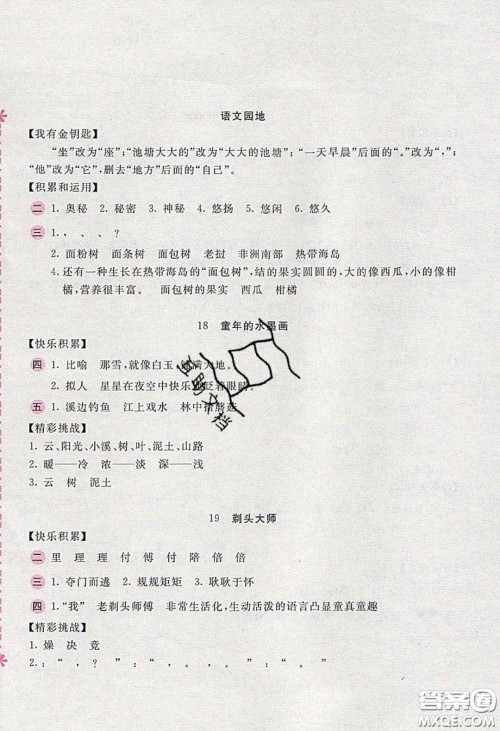 语文园地
【我有金钥匙】
“坐”改为“座”;“池塘大大的”改为“大大的池塘”;“一天早晨”后面的“。”改为“,”;
“他”改为“它”,删去“地方”后面的“自己”。
【积累和运用】
二 1. 奥秘 2. 秘密 3. 神秘 4. 悠扬 5. 悠闲 6. 悠久
三 1. , 、 、 ?
2. 面粉树 面条树 面包树 老挝 非洲南部 热带海岛
4. 还有一种生长在热带海岛的“面包树”,结的果实圆圆的,大的像西瓜,小的像柑
橘,营养很丰富。 面包树的果实 西瓜 柑橘
18 童年的水墨画
【快乐积累】
四 1. 比喻 那雪,就像白玉,铺满大地。
2. 拟人 星星在夜空中快乐地眨着眼睛。
五 1. 溪边钓鱼 江上戏水 林中拾蘑菇
【精彩挑战】
1. 云、阳光、小溪、树、叶、泥土、山路
2. 暖——冷 浓——淡 深——浅
3. 云 树 泥土
19 剃头大师
【快乐积累】
二 里 理 理 付 傅 付 陪 倍 倍
三 1. 夺门而逃 2. 规规矩矩 3. 耿耿于怀
四 1. “我” 老剃头师傅 非常生活化,生动活泼的语言凸显童真童趣
【精彩挑战】
1. 燥 决 竟
2. : “ , ? ” : “ , 。 , 。 ” : “ 。 ”
宜明文档
答案圈
MXQE.COM